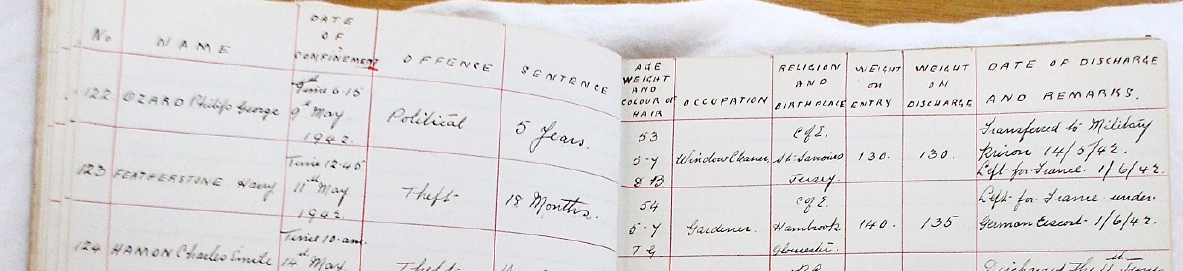 No NAME DATE OF CONFINEMENT OFFENCE SENTENCE AGE WEIGHT AND COLOUR OF HAIR OCCUPATION RELIGION AND BIRTHPLACE WEIGHT ON ENTRY WEIGHT ON DISCHARGE DATE OF DISCHARGE AND REMARKS.
122 OZARD Philip George
Time 6-15
9th May
1942
Political
5 Years.
53
5-7
Window Cleaner
C of E.
St. Saviours
Jersey.
130.
130.
Transferred to Military
Prison 14/5/42.
Left for France 1/6/42.
123 FEATHERSTONE Harry
Time 12-45
11th May
1942
Theft
18 Months.
54
5-7
Gardener.
C of E.
Hambrook
Gloucester.
140.
135
Left for France under
German Escort - 1/6/42.
124 HAMON Charles Emile
Time 10-am.
14th May